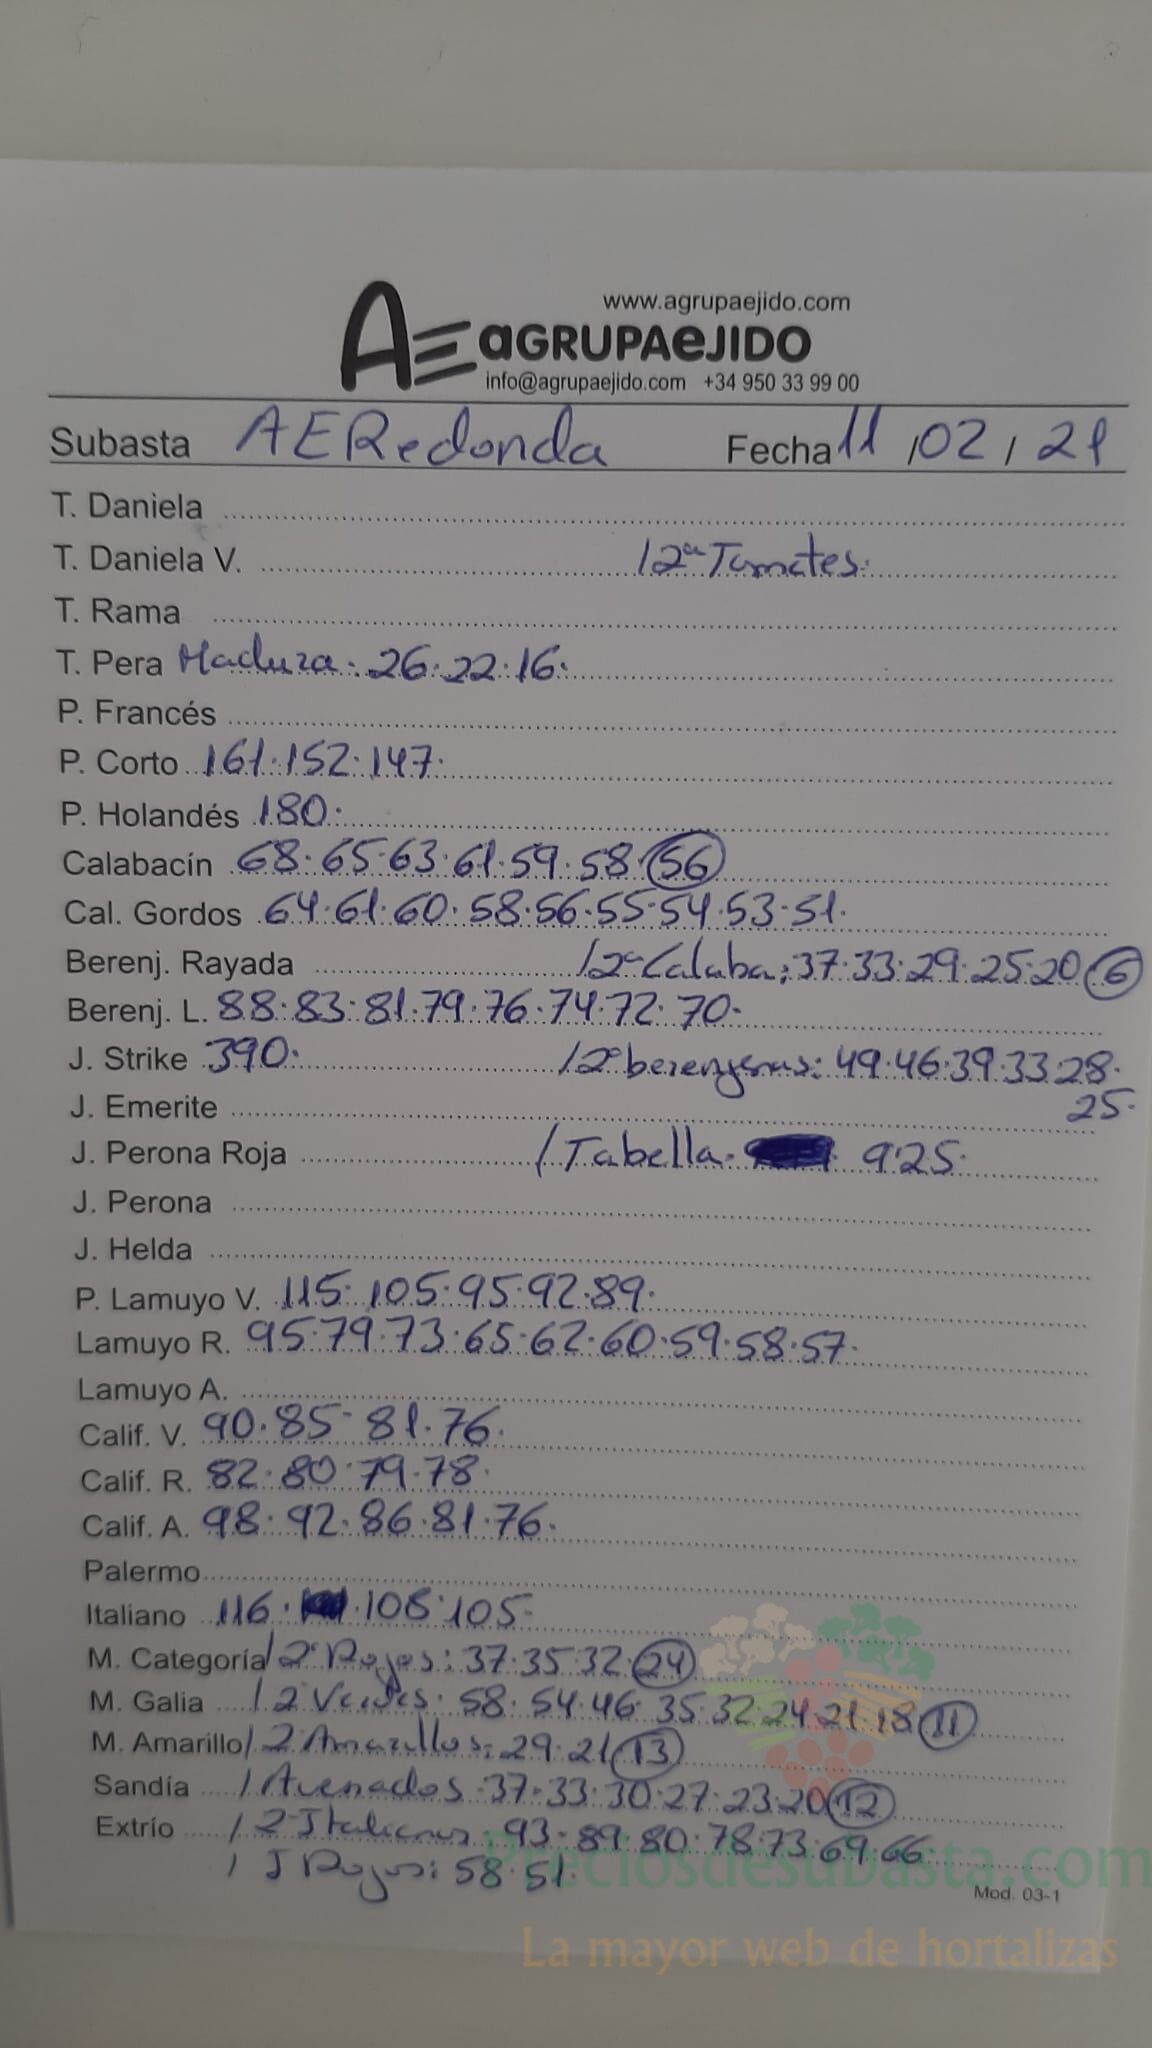 www.agrupaejido.com
AE aGRUPAeJIDO
info@agrupaejido.com +34 950 33 99 00
Subasta AERedonda Fecha 11/02/21
T. Daniela
T. Daniela V. /2ª Tomates:
T. Rama
T. Pera Madura: 26.22.16.
P. Francés
P. Corto 161.152.147.
P. Holandés 180.
Calabacín 68.65.63.61.59.58.56
Cal. Gordos 64.61.60.58.56.55.54.53.51.
Berenj. Rayada /2ª Calaba: 37.33.29.25.20 6
Berenj. L. 88.83.81.79.76.74.72.70.
J. Strike 390. /2ª berenjenas: 49.46.39.33.28.
J. Emerite 25.
J. Perona Roja /Tabella. 925.
J. Perona
J. Helda
P. Lamuyo V. 115.105.95.92.89.
Lamuyo R. 95.79.73.65.62.60.59.58.57.
Lamuyo A.
Calif. V. 90.85.81.76.
Calif. R. 82.80.79.78.
Calif. A. 98.92.86.81.76.
Palermo
Italiano 116.108.105.
M. Categoría /2ª Rojos: 37.35.32.24
M. Galia /2 Verdes: 58.54.46.35.32.24.21.18 11
M. Amarillo /2 Amarillos: 29.21 13
Sandía /Asenados.37.33.30.27.23.20 12
Extrío /2 Italianos: 93.89.80.78.73.69.66
/J Rojos: 58.51.
Preciosdesubasta.com
Mod. 03-1
La mayor web de hortalizas